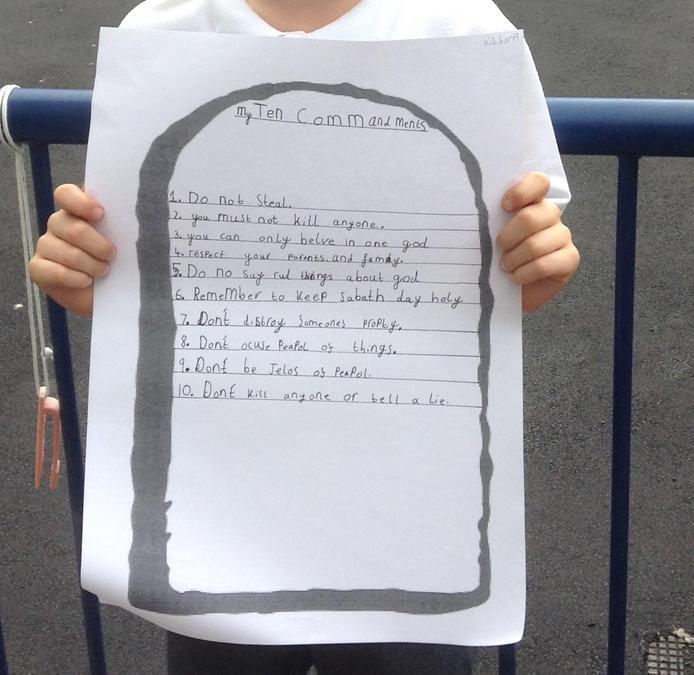 Freddie
My Ten Commandments
1. Do not Steal.
2. you must not kill anyone.
3. you can only belve in one god
4. respect your parents. and famaly.
5. Do no say rud things about god
6. Remember to keep Sabath day holy
7. Dont distroy someones propty.
8. Dont acuse Peapol of things.
9. Dont be Jelos of Peapol.
10. Dont kill anyone or tell a lie.